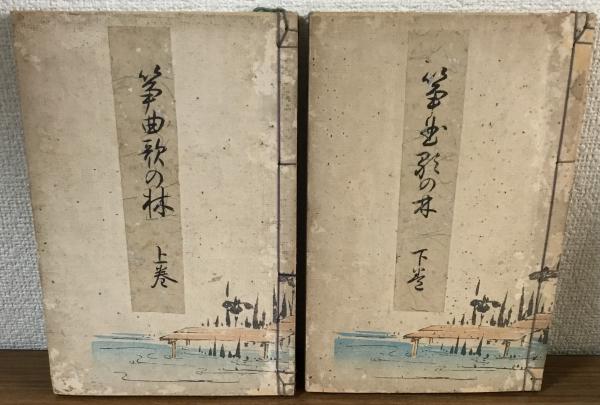 箏曲歌の林
上巻
箏曲歌の林
下巻